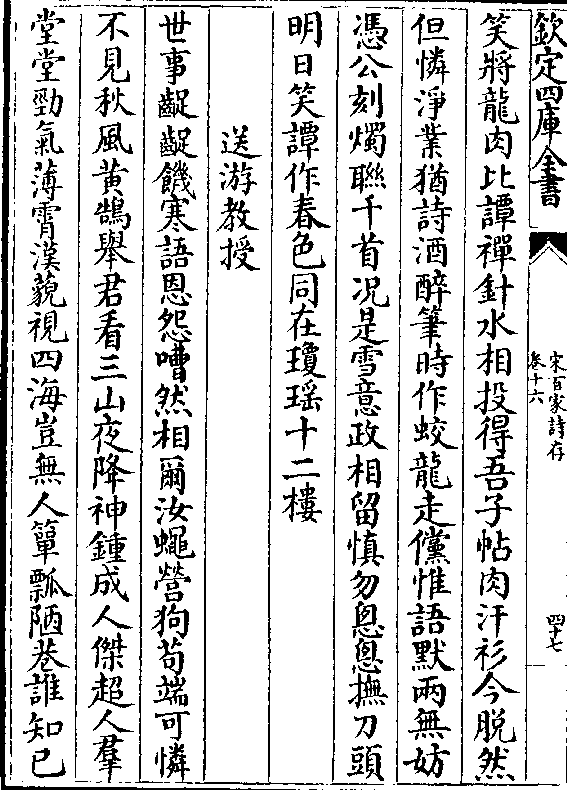 欽定四庫全書
宋百家詩存
卷十六
四十七
笑將龍肉比譚禪針水相投得吾子帖肉汗衫今脱然
但憐淨業猶詩酒醉筆時作蛟龍走儻惟語默兩無妨
憑公刻燭聯千首况是雪意政相留慎勿怱怱撫刀頭
明日笑譚作春色同在瓊瑶十二樓
送游教授
世事齪齪饑寒語恩怨嘈然相爾汝蠅營狗苟端可憐
不見秋風黄鵠舉君看三山夜降神鍾成人傑超人羣
堂堂勁氣薄霄漢藐視四海豈無人簞瓢陋巷誰知已